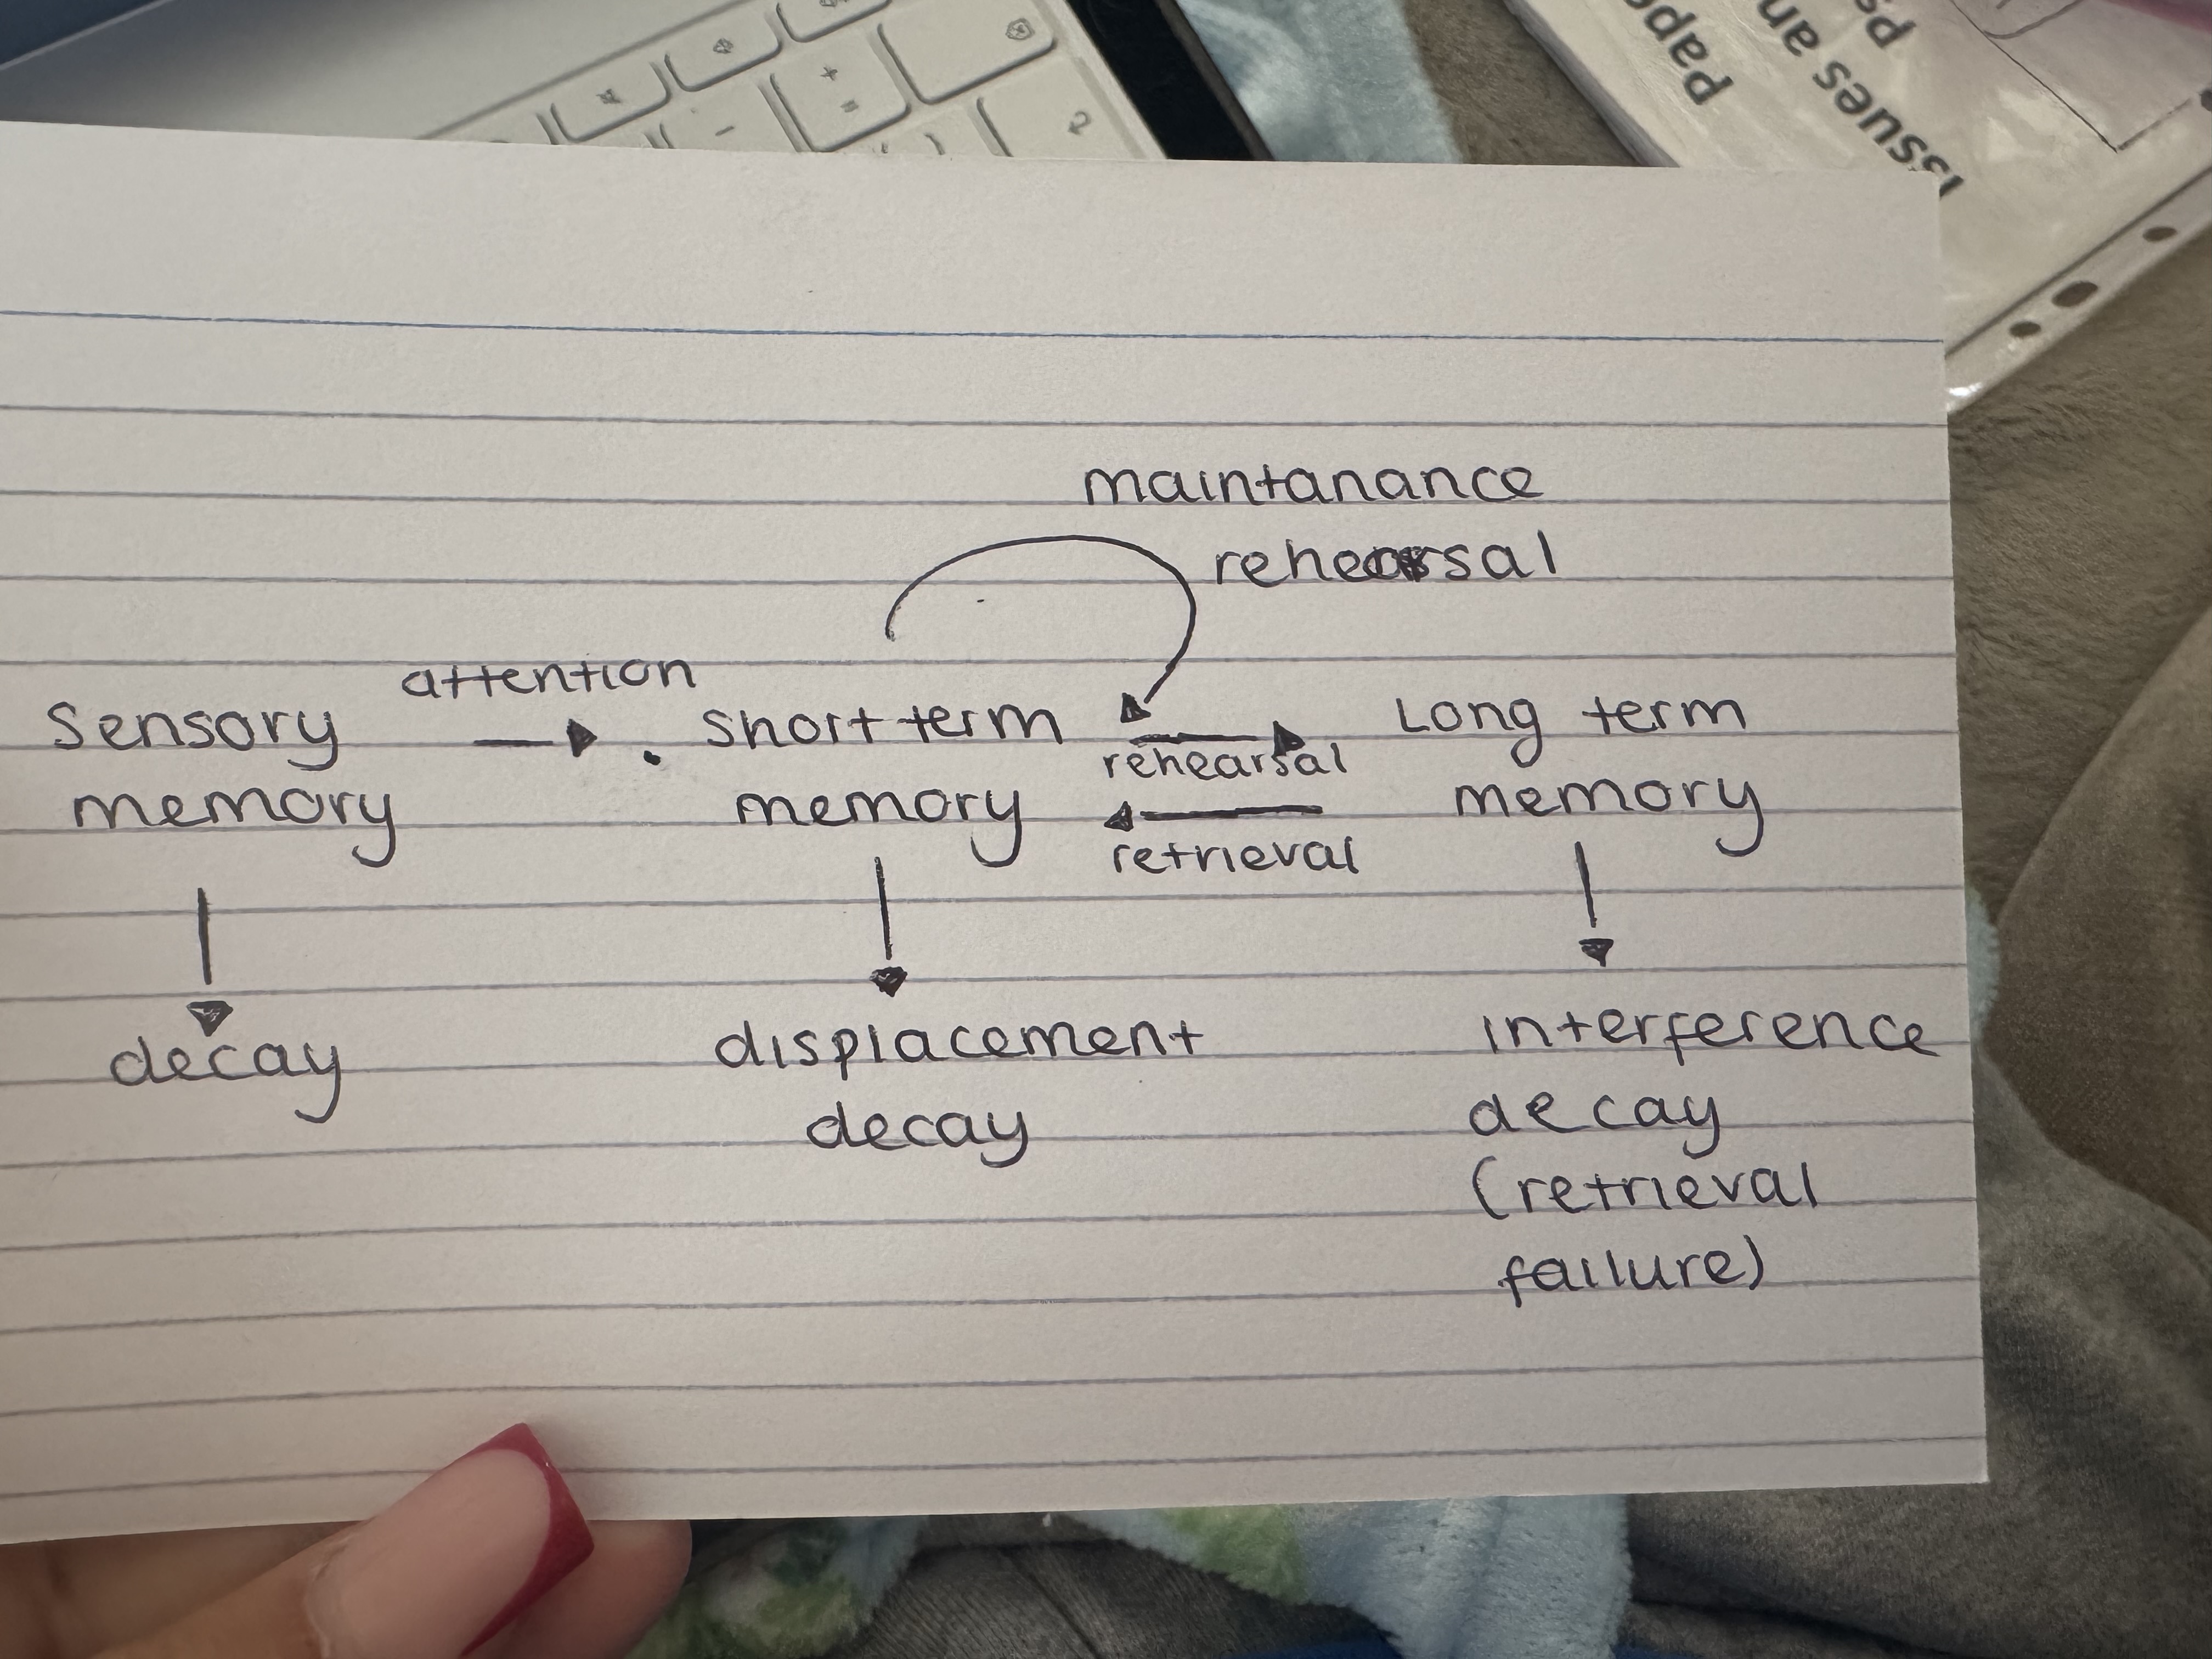 maintanance
rehearsal
attention
Sensory
memory
short term
memory
rehearsal
retrieval
Long term
memory
decay
displacement
decay
interference
decay
(retrieval
failure)
Issues an